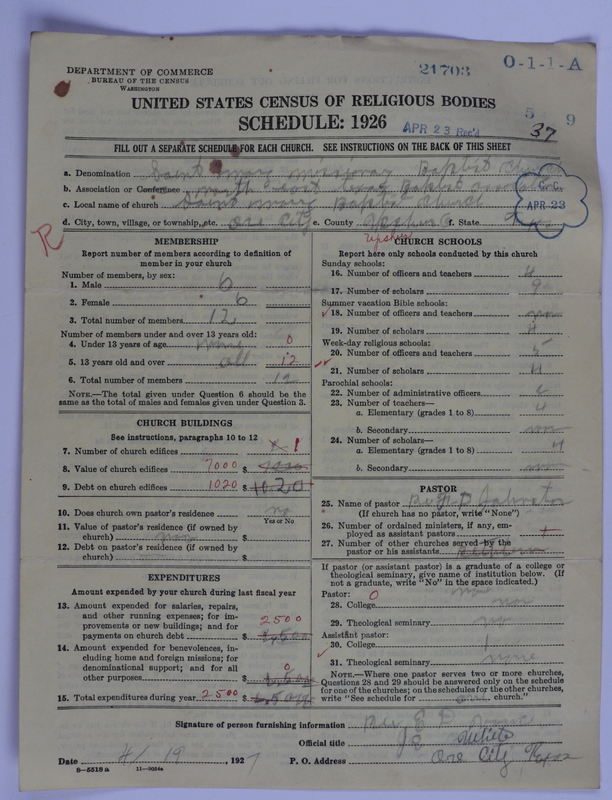 DEPARTMENT OF COMMERCE
BUREAU OF THE CENSUS
WASHINGTON
21703
O-1-1-A
UNITED STATES CENSUS OF RELIGIOUS BODIES
SCHEDULE: 1926
APR 23 Rec'd
5 9
37
FILL OUT A SEPARATE SCHEDULE FOR EACH CHURCH. SEE INSTRUCTIONS ON THE BACK OF THIS SHEET
a. Denomination Saint Mary Missionary Baptist Church
b. Association or Conference North East Texas Baptist
c. Local name of church Saint Mary Baptist Church
C. C.
APR 23
d. City, town, village, or township, etc. Ore City e. County f. State Texas
Upshur
R
MEMBERSHIP
Report number of members according to definition of
member in your church
Number of members, by sex:
1. Male 6
2. Female 6
3. Total number of members 12
Number of members under and over 13 years old:
4. Under 13 years of age none 0
5. 13 years old and over all 12
6. Total number of members 12
NOTE.—The total given under Question 6 should be
same as the total of males and females given under Question 3.
CHURCH BUILDINGS
See instructions, paragraphs 10 to 12
7. Number of church edifices 1
8. Value of church edifices 7000 $
9. Debt on church edifices 1020 $ 1020
10. Does church own pastor's residence? no
Yes or No
11. Value of pastor's residence (if owned by
church) $
12. Debt on pastor's residence (if owned by
church) $
EXPENDITURES
Amount expended by your church during last fiscal year
13. Amount expended for salaries, repairs,
and other running expenses; for im-
provements or new buildings; and for
payments on church debt $ 2500
14. Amount expended for benevolences, in-
cluding home and foreign missions; for
denominational support; and for all
other purposes $ 0
15. Total expenditures during year 2500 $
CHURCH SCHOOLS
Report here only schools conducted by this church
Sunday schools:
16. Number of officers and teachers 4
17. Number of scholars 9
Summer vacation Bible schools:
18. Number of officers and teachers
19. Number of scholars
Week-day religious schools:
20. Number of officers and teachers 5
21. Number of scholars
Parochial schools:
22. Number of administrative officers
23. Number of teachers—
a. Elementary (grades 1 to 8)
b. Secondary
24. Number of scholars—
a. Elementary (grades 1 to 8)
b. Secondary
PASTOR
25. Name of pastor
(If church has no pastor, write "None")
26. Number of ordained ministers, if any, em-
ployed as assistant pastors
27. Number of other churches served by the
pastor or his assistants
If pastor (or assistant pastor) is a graduate of a college or
theological seminary, give name of institution below. (If
not a graduate, write "No" in the space indicated.)
Pastor: 0
28. College
29. Theological seminary
Assistant pastor:
30. College
31. Theological seminary none
NOTE.—Where one pastor serves two or more churches,
Questions 28 and 29 should be answered only on the schedule
for one of the churches; on the schedules for the other churches,
write "See schedule for church."
Signature of person furnishing information
Official title
Date 4/19, 1927 P. O. Address Ore City Texas
8—5518 a 11—9024a